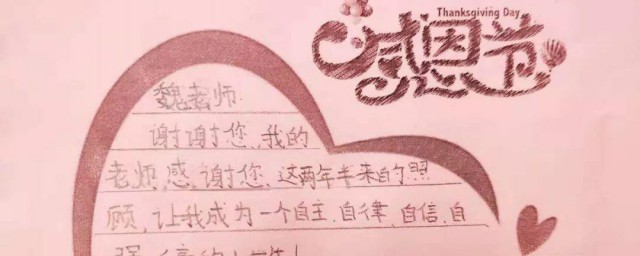 Thanksgiving Day
感恩节
魏老师
谢谢您,我的
老师,感谢您,这两年半来的照
顾,让我成为一个自主、自律、自信、自
强